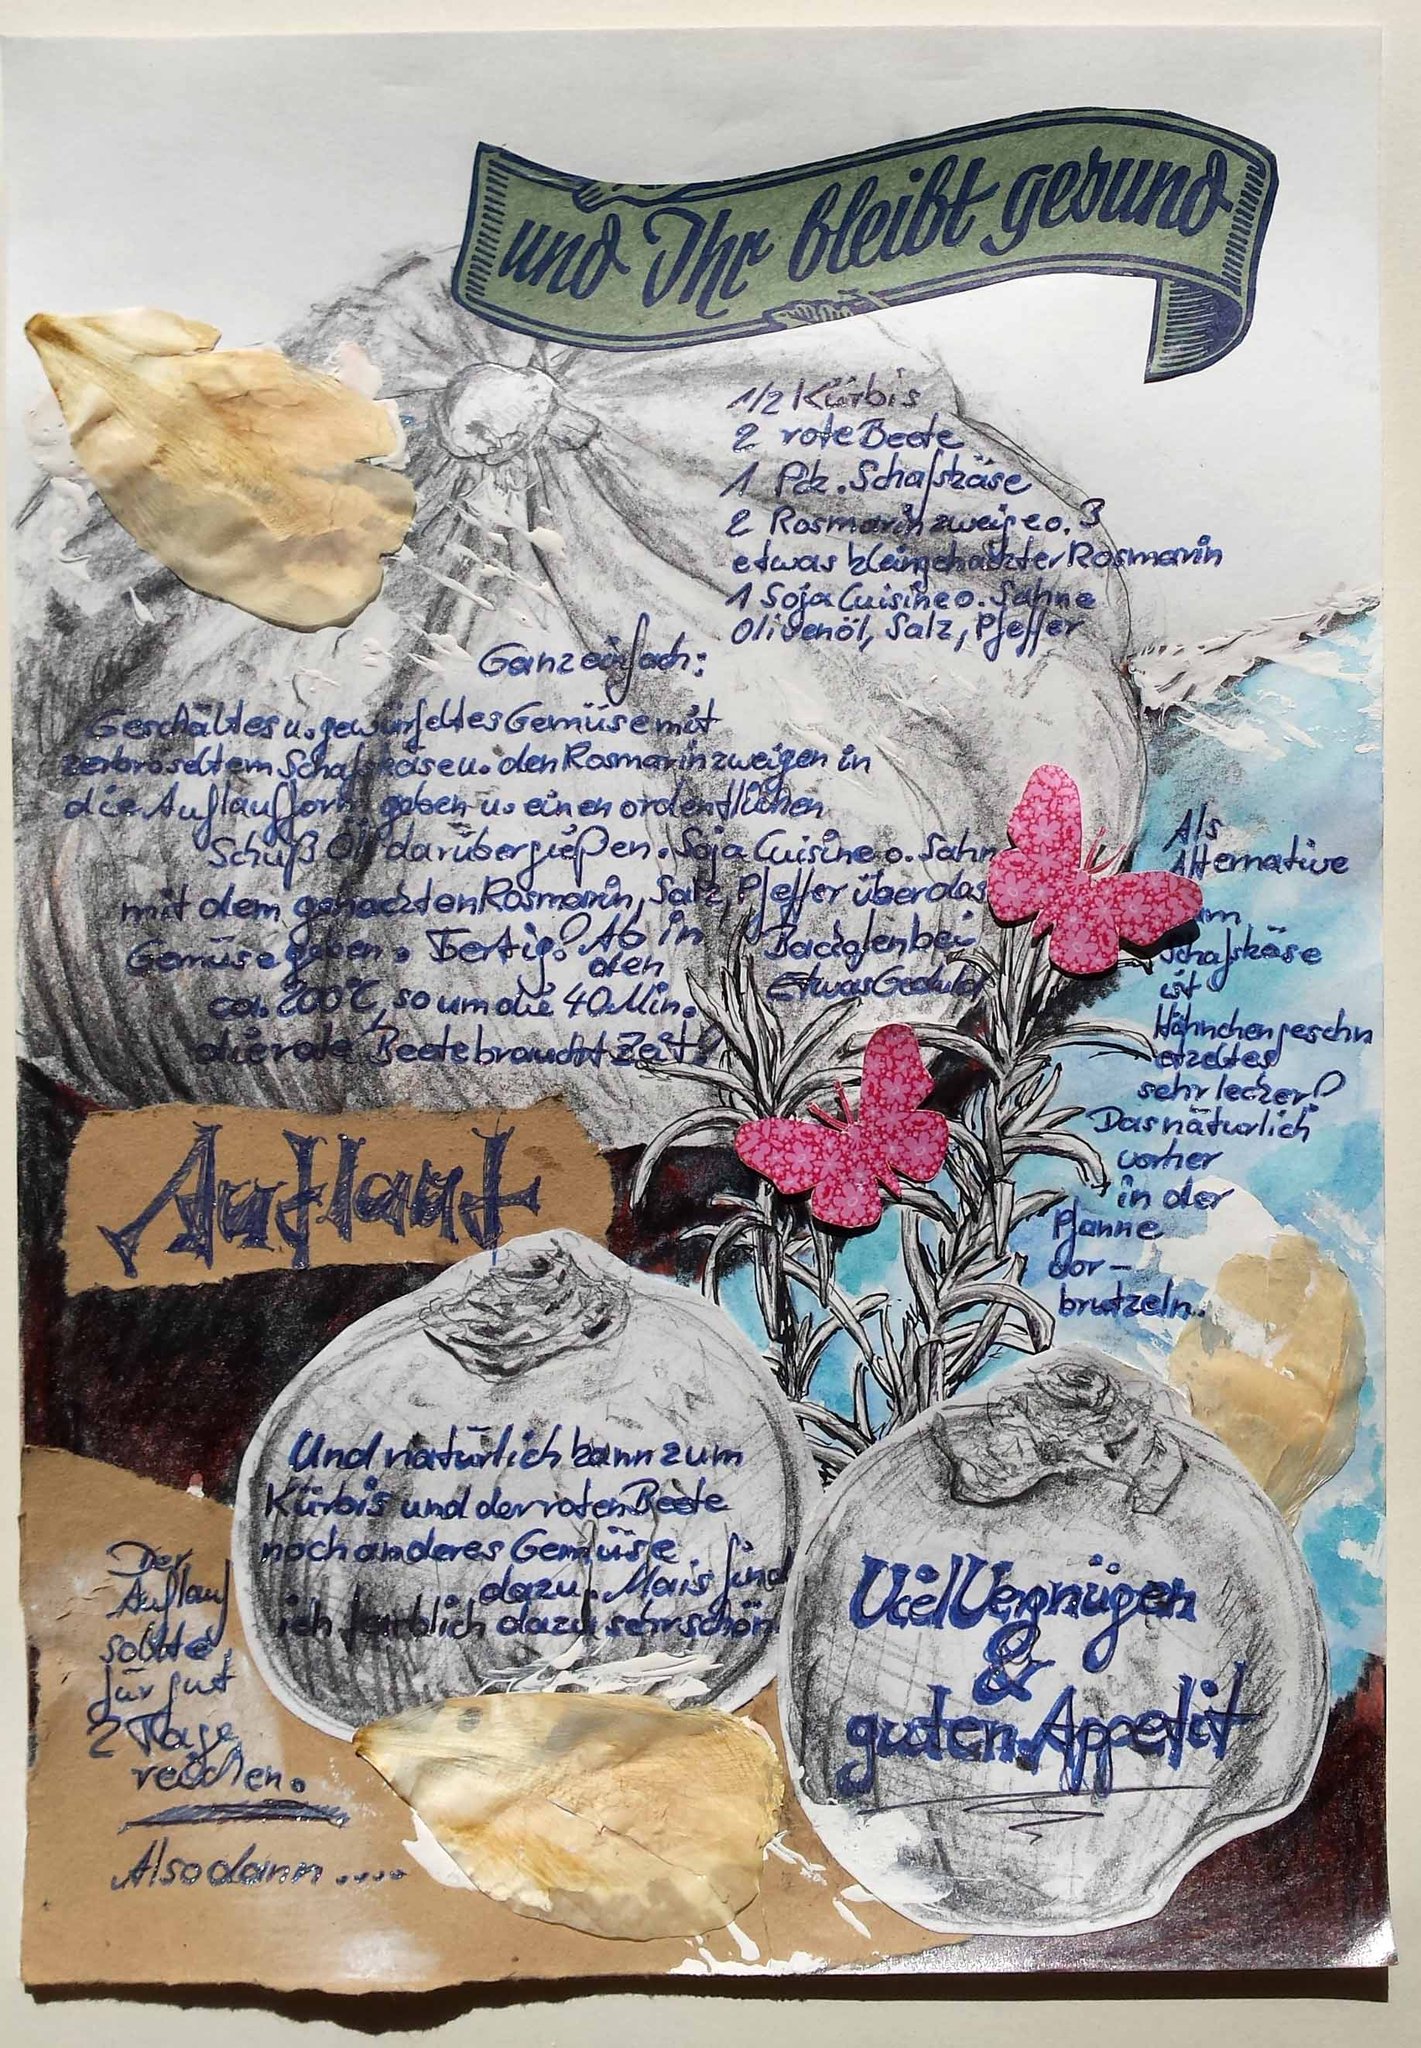 und Ihr bleibt gesund
1/2 Kürbis
2 rote Beete
1 Pck. Schafskäse
2 Rosmarinzweige o. 3
etwas kleingehackter Rosmarin
1 Soja Cuisine o. Sahne
Olivenöl, Salz, Pfeffer
Ganz einfach:
Geschältes u. gewürfeltes Gemüse mit
zerbröseltem Schafskäse u. den Rosmarinzweigen in
die Auflaufform geben u. einen ordentlichen
Schuß Öl darübergießen. Soja Cuisine o. Sahn
mit dem gehackten Rosmarin, Salz, Pfeffer über das
Gemüse geben. Fertig! Ab in
den Backofen bei
ca. 200°C, so um die 40 Min. Etwas Geduld
die rote Beete braucht Zeit!
Als
Alternative
zum
Schafskäse
ist
Hähnchengeschn
etzeltes
sehr lecker!
Das natürlich
vorher
in der
Pfanne
vor-
brutzeln.
Auflauf
Und natürlich kann zum
Kürbis und der roten Beete
noch anderes Gemüse
dazu. Mais find
ich farblich dazu sehr schön
Der
Auflauf
sollte
für gut
2 Tage
reichen.
Also dann ....
Viel Vergnügen
&
guten Appetit